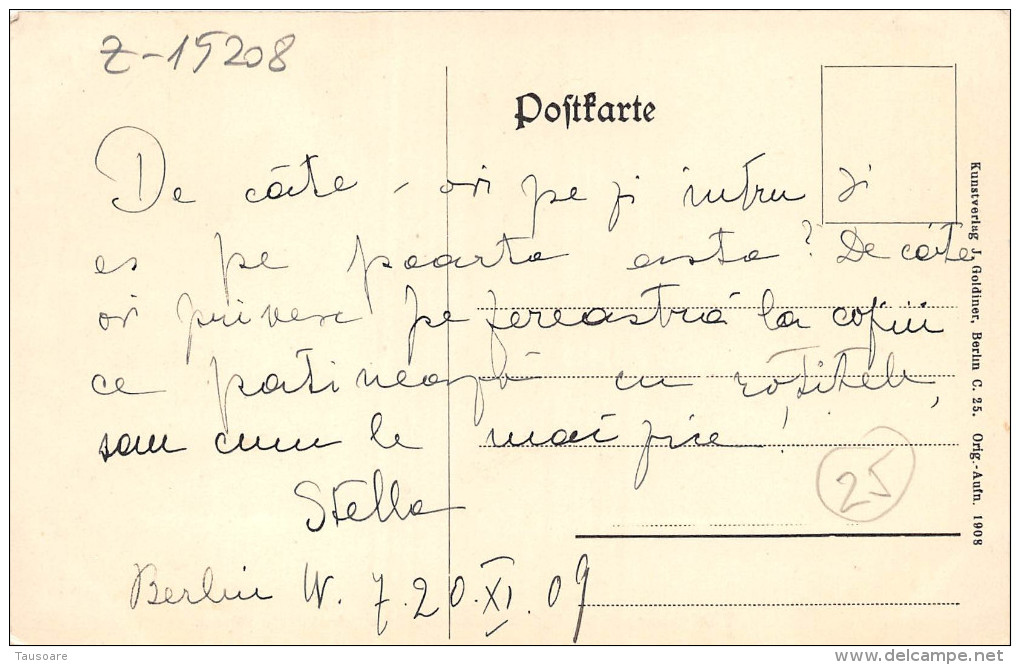 Z-15208
Postkarte
De câte-ori pe zi intru și
es pe poarta asta? De câte
ori privesc pe fereastră la copiii
ce patinează cu roțitele,
sau cum le mai zice!
Stella
25
Berlin W. 7. 20.XI.09
Kunstverlag J. Goldiner, Berlin C. 25. Orig.-Aufn. 1908
Tausoare
www.delcampe.net